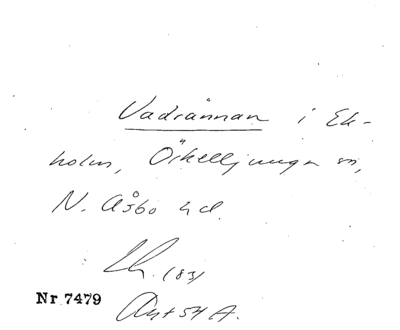 Vadrännan i Ek-
holm, Örkelljunga sn,
N. Åsbo hd.
(83)
Nr 7479
A.